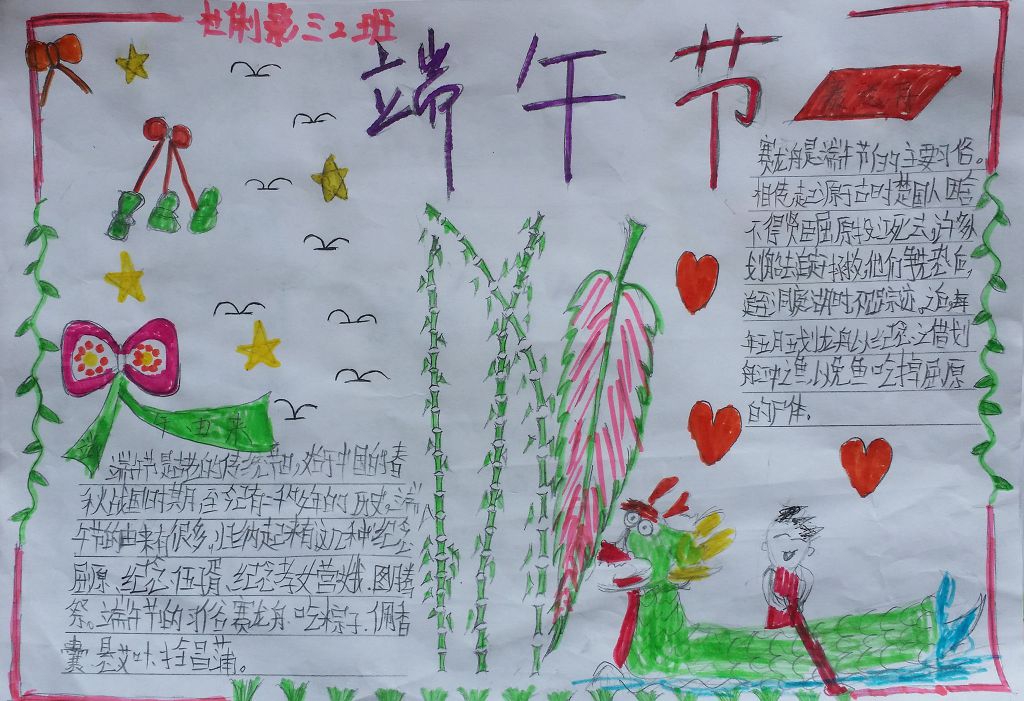 杜荆景三2班
端午节
赛龙舟
赛龙舟是端午节的主要习俗。
相传起源于古时楚国人因舍
不得贤臣屈原投江死去，许多
划船追赶拯救。他们争先恐后，
追至洞庭湖时不见踪迹。之后每
年五月五划龙舟以纪念之借划
舟冲之鱼，以免鱼吃掉屈原
的尸体。
午由来
端午节是古老的传统节日，始于中国的春
秋战国时期，至今有二千多年的历史。端
午节的由来有很多，归纳起来有这几种：纪念
屈原、纪念伍瑨、纪念孝女曹娥、图腾
祭。端午节的习俗赛龙舟、吃米粽子、佩香
囊、悬艾叶挂昌蒲。